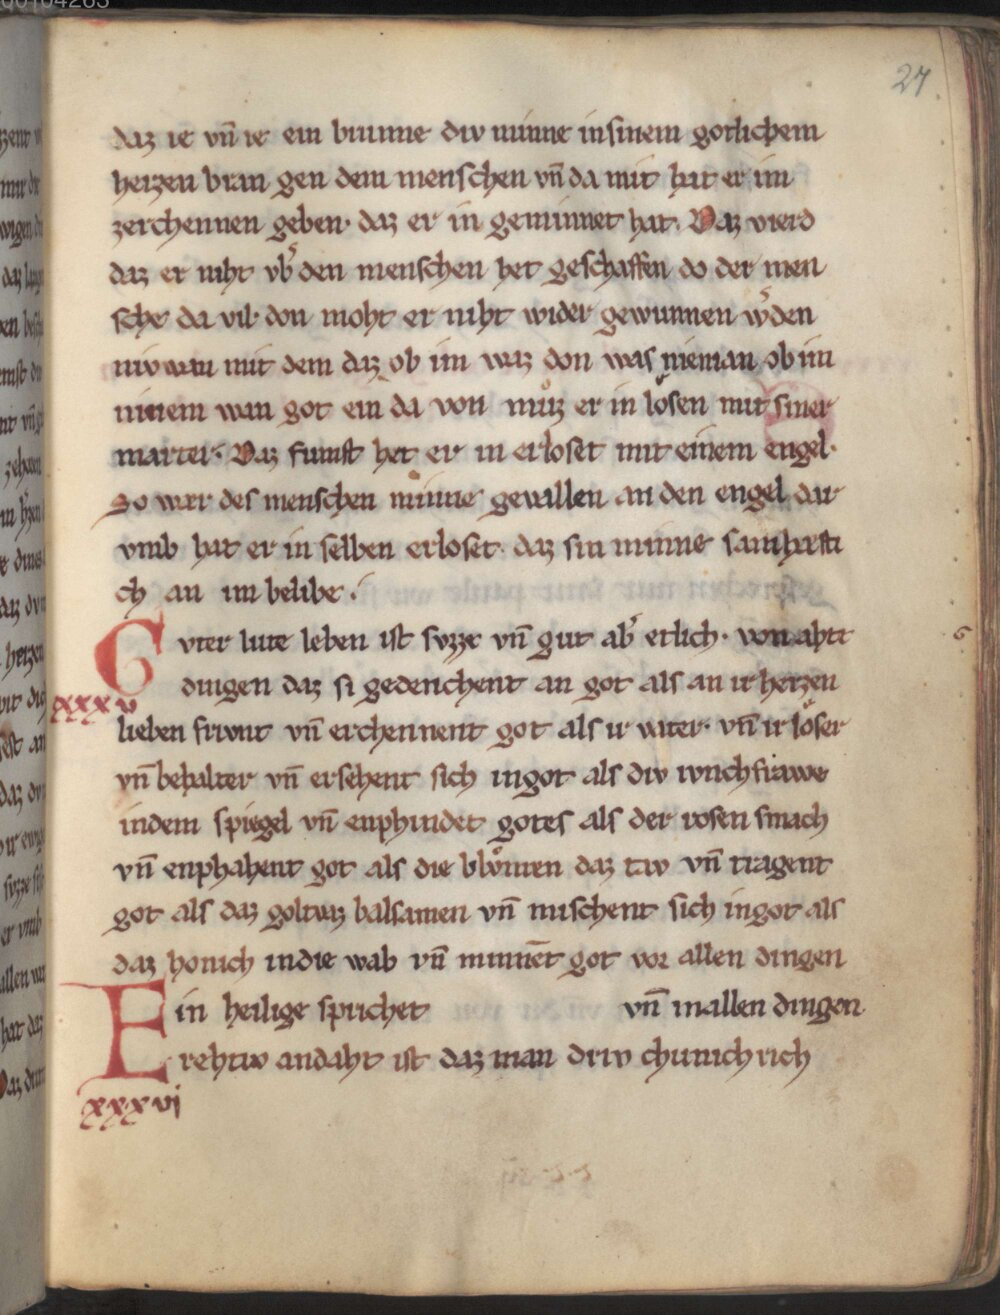 27
daz ie vn̄ ie ein brunne div minne insinem gotlichem
herzen bran gen dem menschen vn̄ da mit hat er im
zerchennen geben· daz er in geminnet hat. Daz vierd
daz er niht vb̾ den menschen het geschaffen do der men
sche da vil· don moht er niht wider gewunnen w̾den
niv wan mit dem daz ob im waz don was nieman ob im
ninem wan got ein da von můz er in lösen mit siner
marter· Daz fumft het er in erloset mit einem engel·
So wer des menschen minne gevallen an den engel dar
vmb hat er in selben erloset· daz sin minne
ch an im belibe·
Gvter livte leben ist svzze vn̄ gut ab̾ etlich· von ahte
dingen daz si gedenchent an got als an ir herzen
xxxv
lieben frivnt vn̄ erchennent got als ir vater· vn̄ ir löser
vn̄ behalter vn̄ ersehent sich ingot als div ivnchfrawe
indem spiegel vn̄ enphindet gotes als der rosen smach
vn̄ enphahent got als die blůmen daz taw vn̄ tragent
got als daz goltvaz balsamen vn̄ mischent sich ingot als
daz honich indie wab vn̄ minnēt got vor allen dingen
Ein heilige sprichet vn̄ inallen dingen
rehtiv andaht ist daz man driv chunichrich
xxxvi